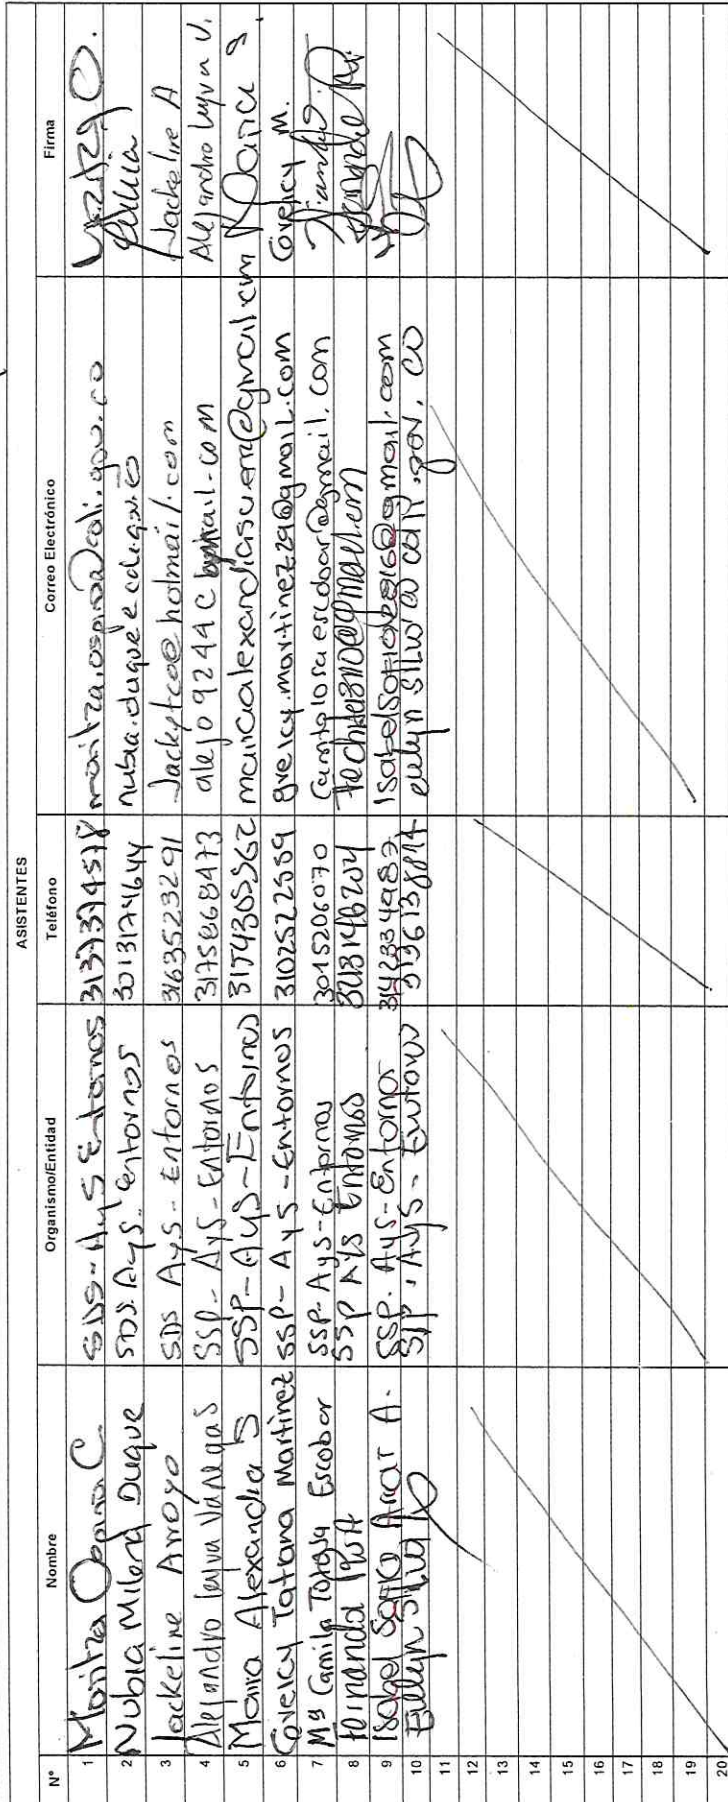 ASISTENTES
N° Nombre Organismo/Entidad Teléfono Correo Electrónico Firma
1 Maritza Ospina C. SDS-AyS Entornos 3137374578 maritza.ospina@cali.gov.co
2 Nubia Milena Duque SDS. AyS- Entornos 3013174644 nubia.duque@cali.gov.co Nubia
3 Jackeline Arroyo SDS AyS - Entornos 3163523291 Jackytco@hotmail.com Jackeline A
4 Alejandro Leyva Vanegas SSP - AyS - Entornos 3175868473 alejo9244C Alejandro Leyva V.
5 Maria Alexandra S SSP - AyS - Entornos 3174305562 Maria S.
6 Greicy Tatiana Martinez SSP - AyS - Entornos 3102522559 greicy.martinez29@gmail.com Greicy M.
7 Mª Camila Tolosa Escobar SSP- AyS - Entornos 3015206070 Camitolosaescobar@gmail.com
8 Fernanda SSP AyS Entornos
9 Isabel Sofia Arcat A. SSP. AyS - Entornos
10 Evelyn Silva SSP. AyS - Entornos
11
12
13
14
15
16
17
18
19
20